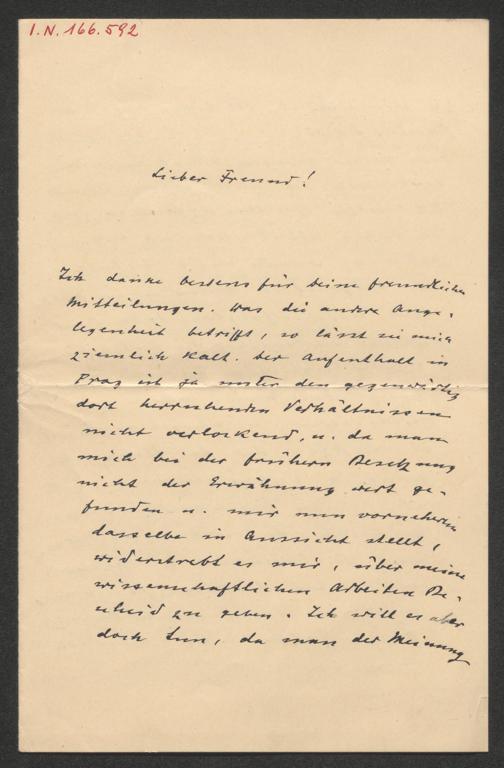 I.N. 166.592
Lieber Freund!
Ich danke bestens für deine freundlichen
Mitteilungen. Was die andere Ange-
legenheit betrifft, so lässt sie mich
ziemlich kalt. Der Aufenthalt in
Prag ist ja unter den gegenwärtig
dort herrschenden Verhältnissen
nicht verlockend, u. da man
mich bei der frühern Besetzung
nicht der Erwähnung wert ge-
funden u. mir nun vorneherein
dasselbe in Aussicht stellt,
widerstrebt es mir, über meine
wissenschaftlichen Arbeiten Be-
scheid zu geben. Ich will es aber
doch tun, da man der Meinung